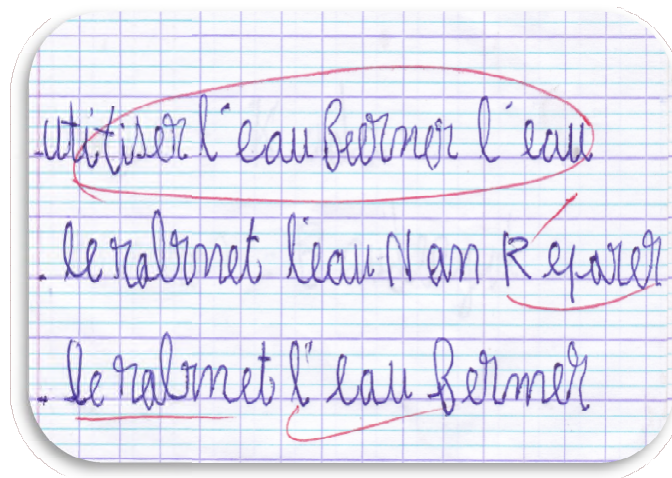 .utitiser l'eau feermer l'eau
. le rabrnet l'eau N an Réparer
. le rabrnet l'eau fermer